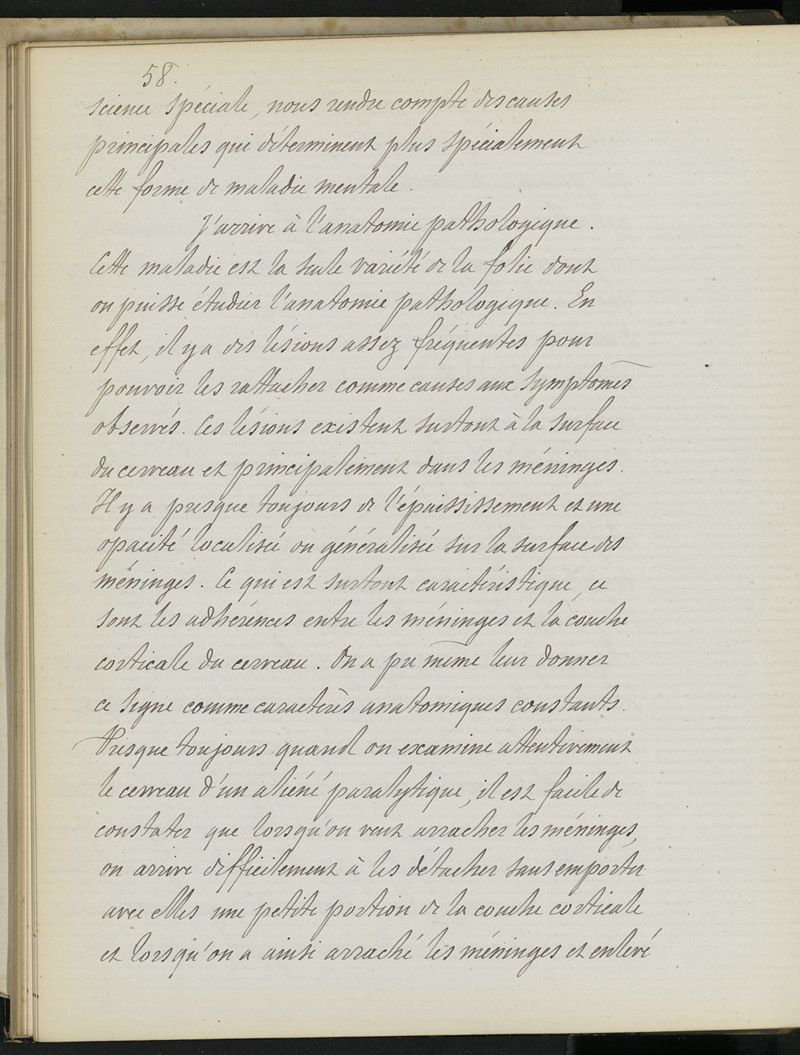 58.
science spéciale, nous rendre compte des causes
principales qui déterminent plus spécialement
cette forme de maladie mentale.
J'arrive à l'anatomie pathologique.
Cette maladie est la seule variété de la folie dont
on puisse étudier l'anatomie pathologique. En
effet, il y a des lésions assez fréquentes pour
pouvoir les rattacher comme causes aux symptomes
observés. Ces lésions existent surtout à la surface
du cerveau et principalement dans les méninges.
Il y a presque toujours de l'épaississement et une
opacité localisée ou généralisée sur la surface des
méninges. Ce qui est surtout caractéristique, ce
sont les adhérences entre les méninges et la couche
corticale du cerveau. On a pu même leur donner
ce signe comme caractères anatomiques constants.
Presque toujours quand on examine attentivement
le cerveau d'un aliéné paralytique, il est facile de
constater que lorsqu'on veut arracher les méninges,
on arrive difficilement à les détacher sans emporter
avec elles une petite portion de la couche corticale
et lorsqu'on a ainsi arraché les méninges et enlevé